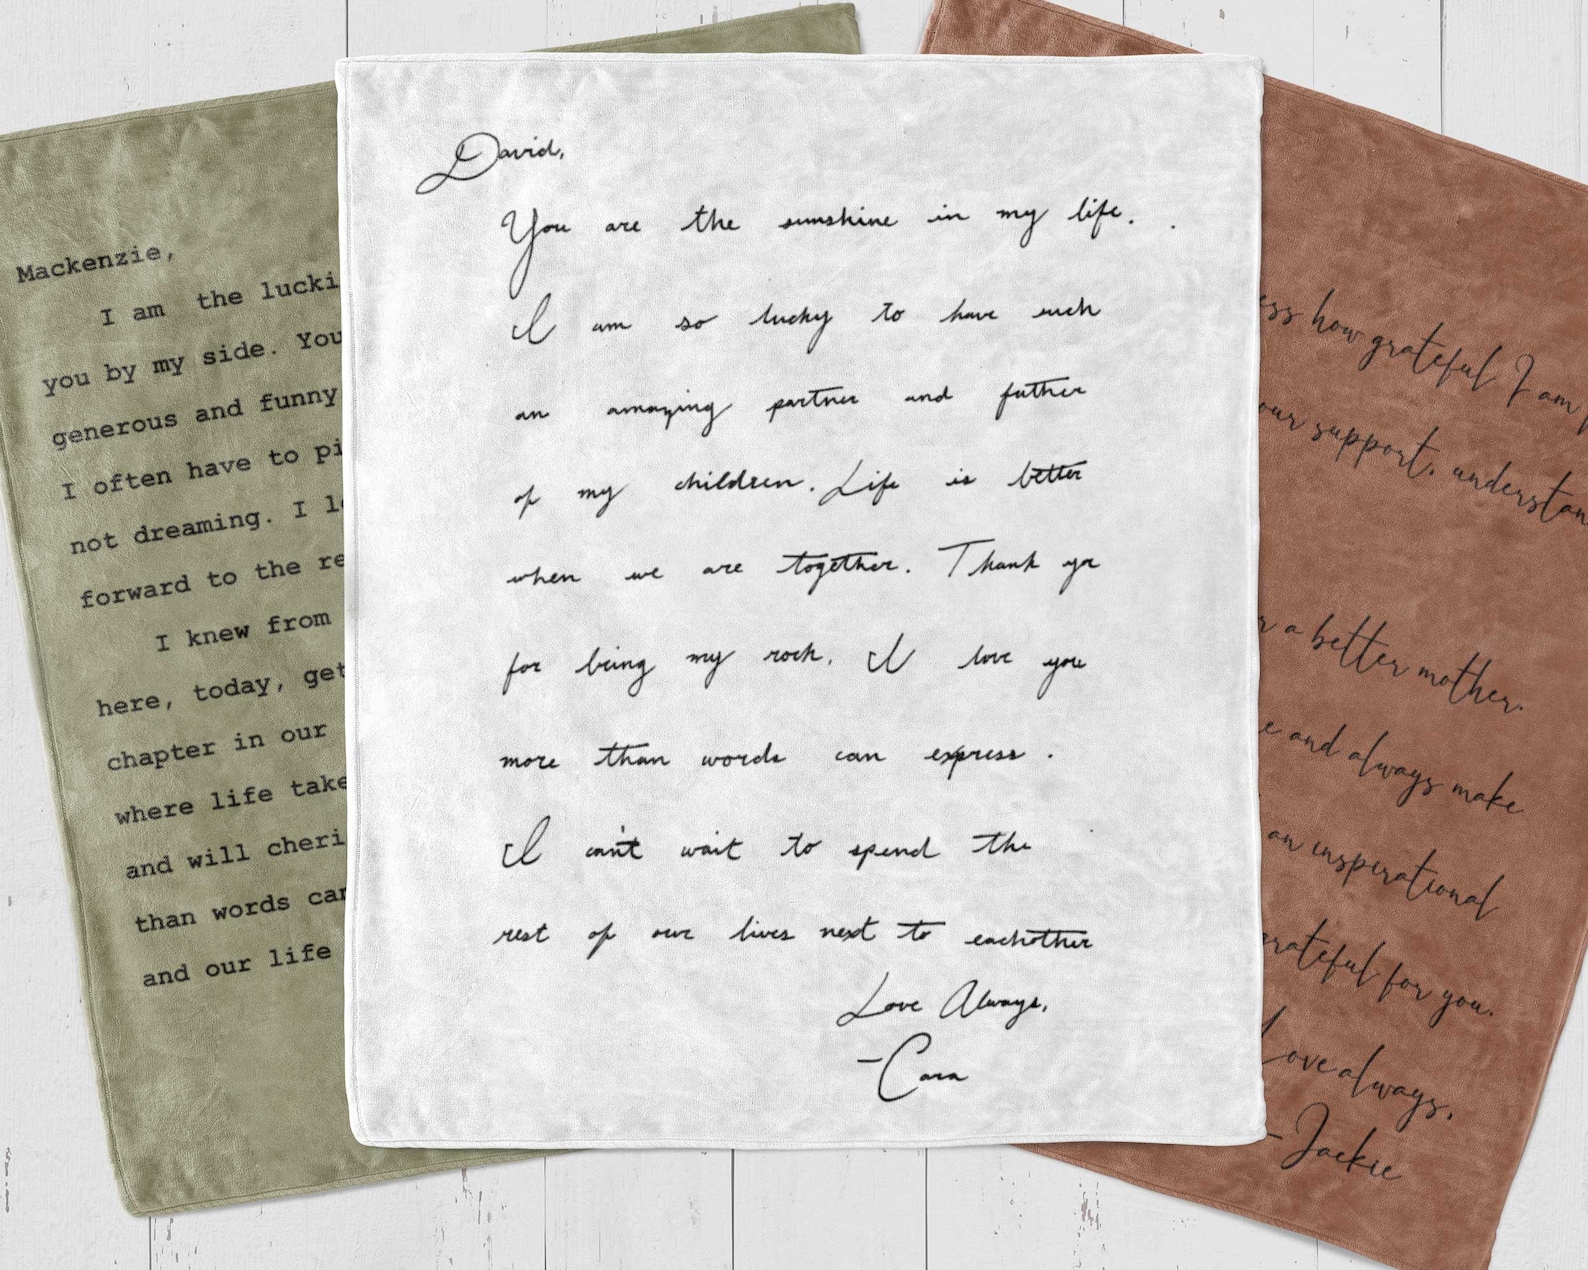 Mackenzie,
I am the lucki
you by my side. You
generous and funny
I often have to pi
not dreaming. I lo
forward to the re
I knew from
here, today, get
chapter in our
where life take
and will cheri
than words can
and our life
David,
You are the sunshine in my life. .
I am so lucky to have such
an amazing partner and father
of my children. Life is better
when we are together. Thank yo
for being my rock. I love you
more than words can express .
I can't wait to spend the
rest of our lives next to eachother
Love Always,
-Cara
ess how grateful I am
our support, understan
a better mother.
e and always make
an inspirational
grateful for you.
Love always,
-Jackie